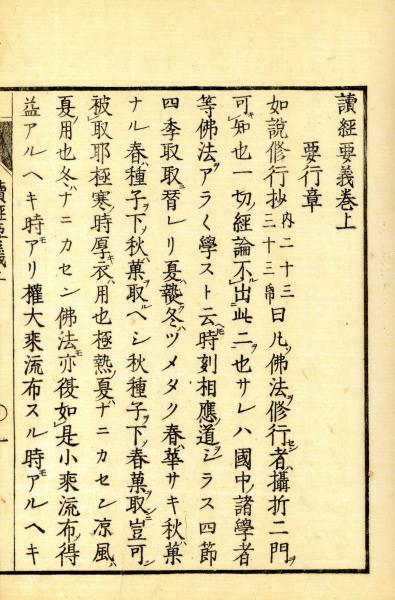 讀經要義卷上
要行章
如說修行抄 内二十三 三十三席 曰凡ソ佛法ヲ修行セン者ハ攝折二門ヲ
可キ知ル也一切ノ經論不出此二ヲ也サレハ國中ノ諸學者
等佛法ヲアラ〱學ストヘトモ云時刻相應ノ道ヲシラス四節
四季取取ニ替レリ夏ハ熱ク冬ハツメタク春ハ華サキ秋ハ菓
ナル春種子ヲ下シテ秋菓ヲ取ヘシ秋種子ヲ下シテ春菓ヲ取ンニ豈可ンヤ
被取耶極寒ノ時ハ厚キ衣ハ用也極熱ノ夏ハナニカセン凉風ハ
夏ノ用也冬ハナニカセン佛法モ亦復如是小乘ノ流布シテ得
益アルヘキ時モアリ權大乘ノ流布スル時モアルヘキ
讀經要義上
〇一